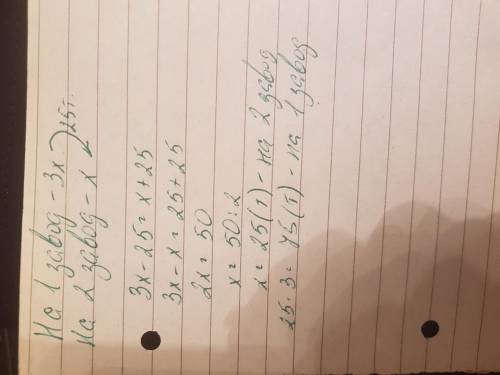 На 1 завод - 3х
На 2 завод - х
25т.
3х - 25 = х + 25
3х - х = 25 + 25
2х = 50
х = 50 : 2
х = 25 (т) - на 2 завод
25 · 3 = 75 (т) - на 1 завод